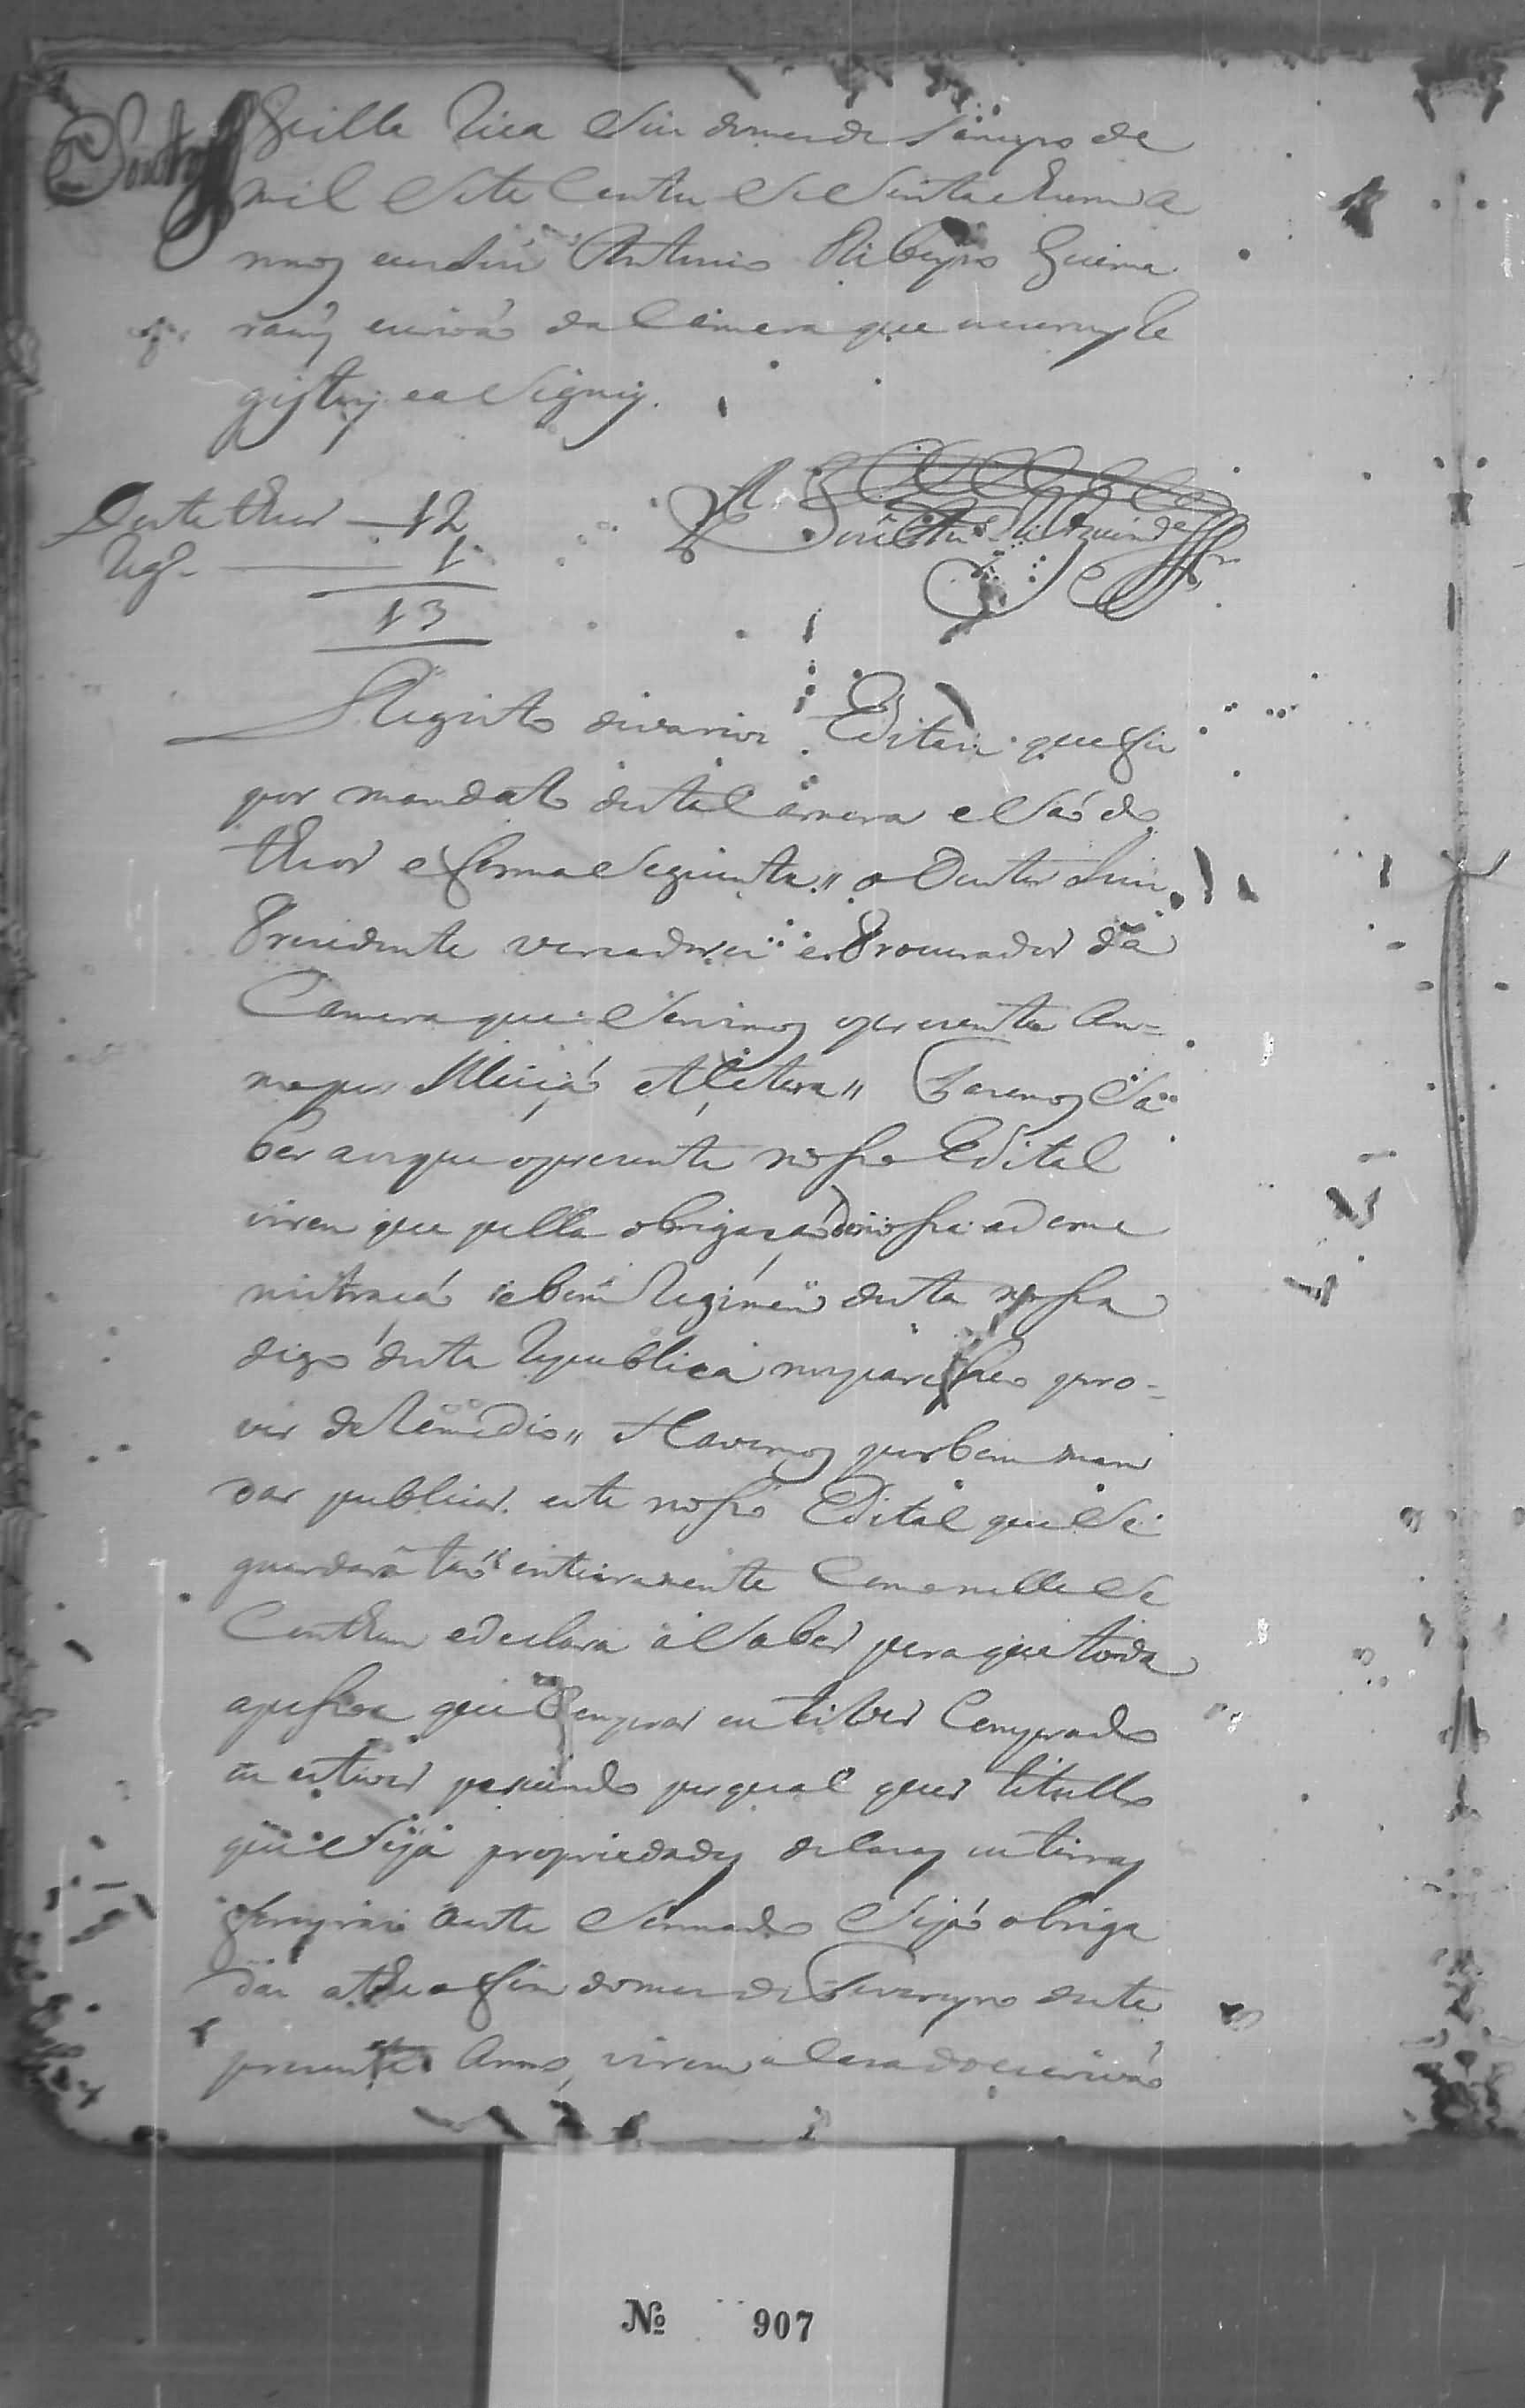 Villa Rica Vin domes de Janeyro de
mil Sete Centos SeSenta ehum a
nnos eu Jozé Antonio Ribeyro Guima
raiñs escrivaó da Camera que escrevy Re
gistey ea Signey.
Deste theor — 12
Reg.º — 1
13
Registo de varios Editais que fis
por mandato desta Camera e Saó do
theor e forma Seguinte,, o Doutor Juis
Prezidente vereadores e Procurador da
Camera que Servimos o prezente An=
no por Elleiçaó etCetera,, Fazemos Sa
ber aos que o prezente nosso Edital
virem que pella obrigacaó de nossa ademe
nistracaó e bom Regimen desta nossa
digo deste Republica nos pareceo pro=
ver de Remedio,, Havemos por bem man
dar publicar este nosso Edital que Se
guardara taó inteiramente Como nelle Se
Conthem edeclara a Saber para que toda
a pessoa que Comprar ou tiver Comprado
ou estiver pesuindo por qual quer titullo
que Seja propriedades de Cazas ou terras
foreyras a este Sennado Sejaó obriga
das athe o fim do mes de Fevereyro deste
prezente Anno, virem a Caza do escrivaó
Nº 907